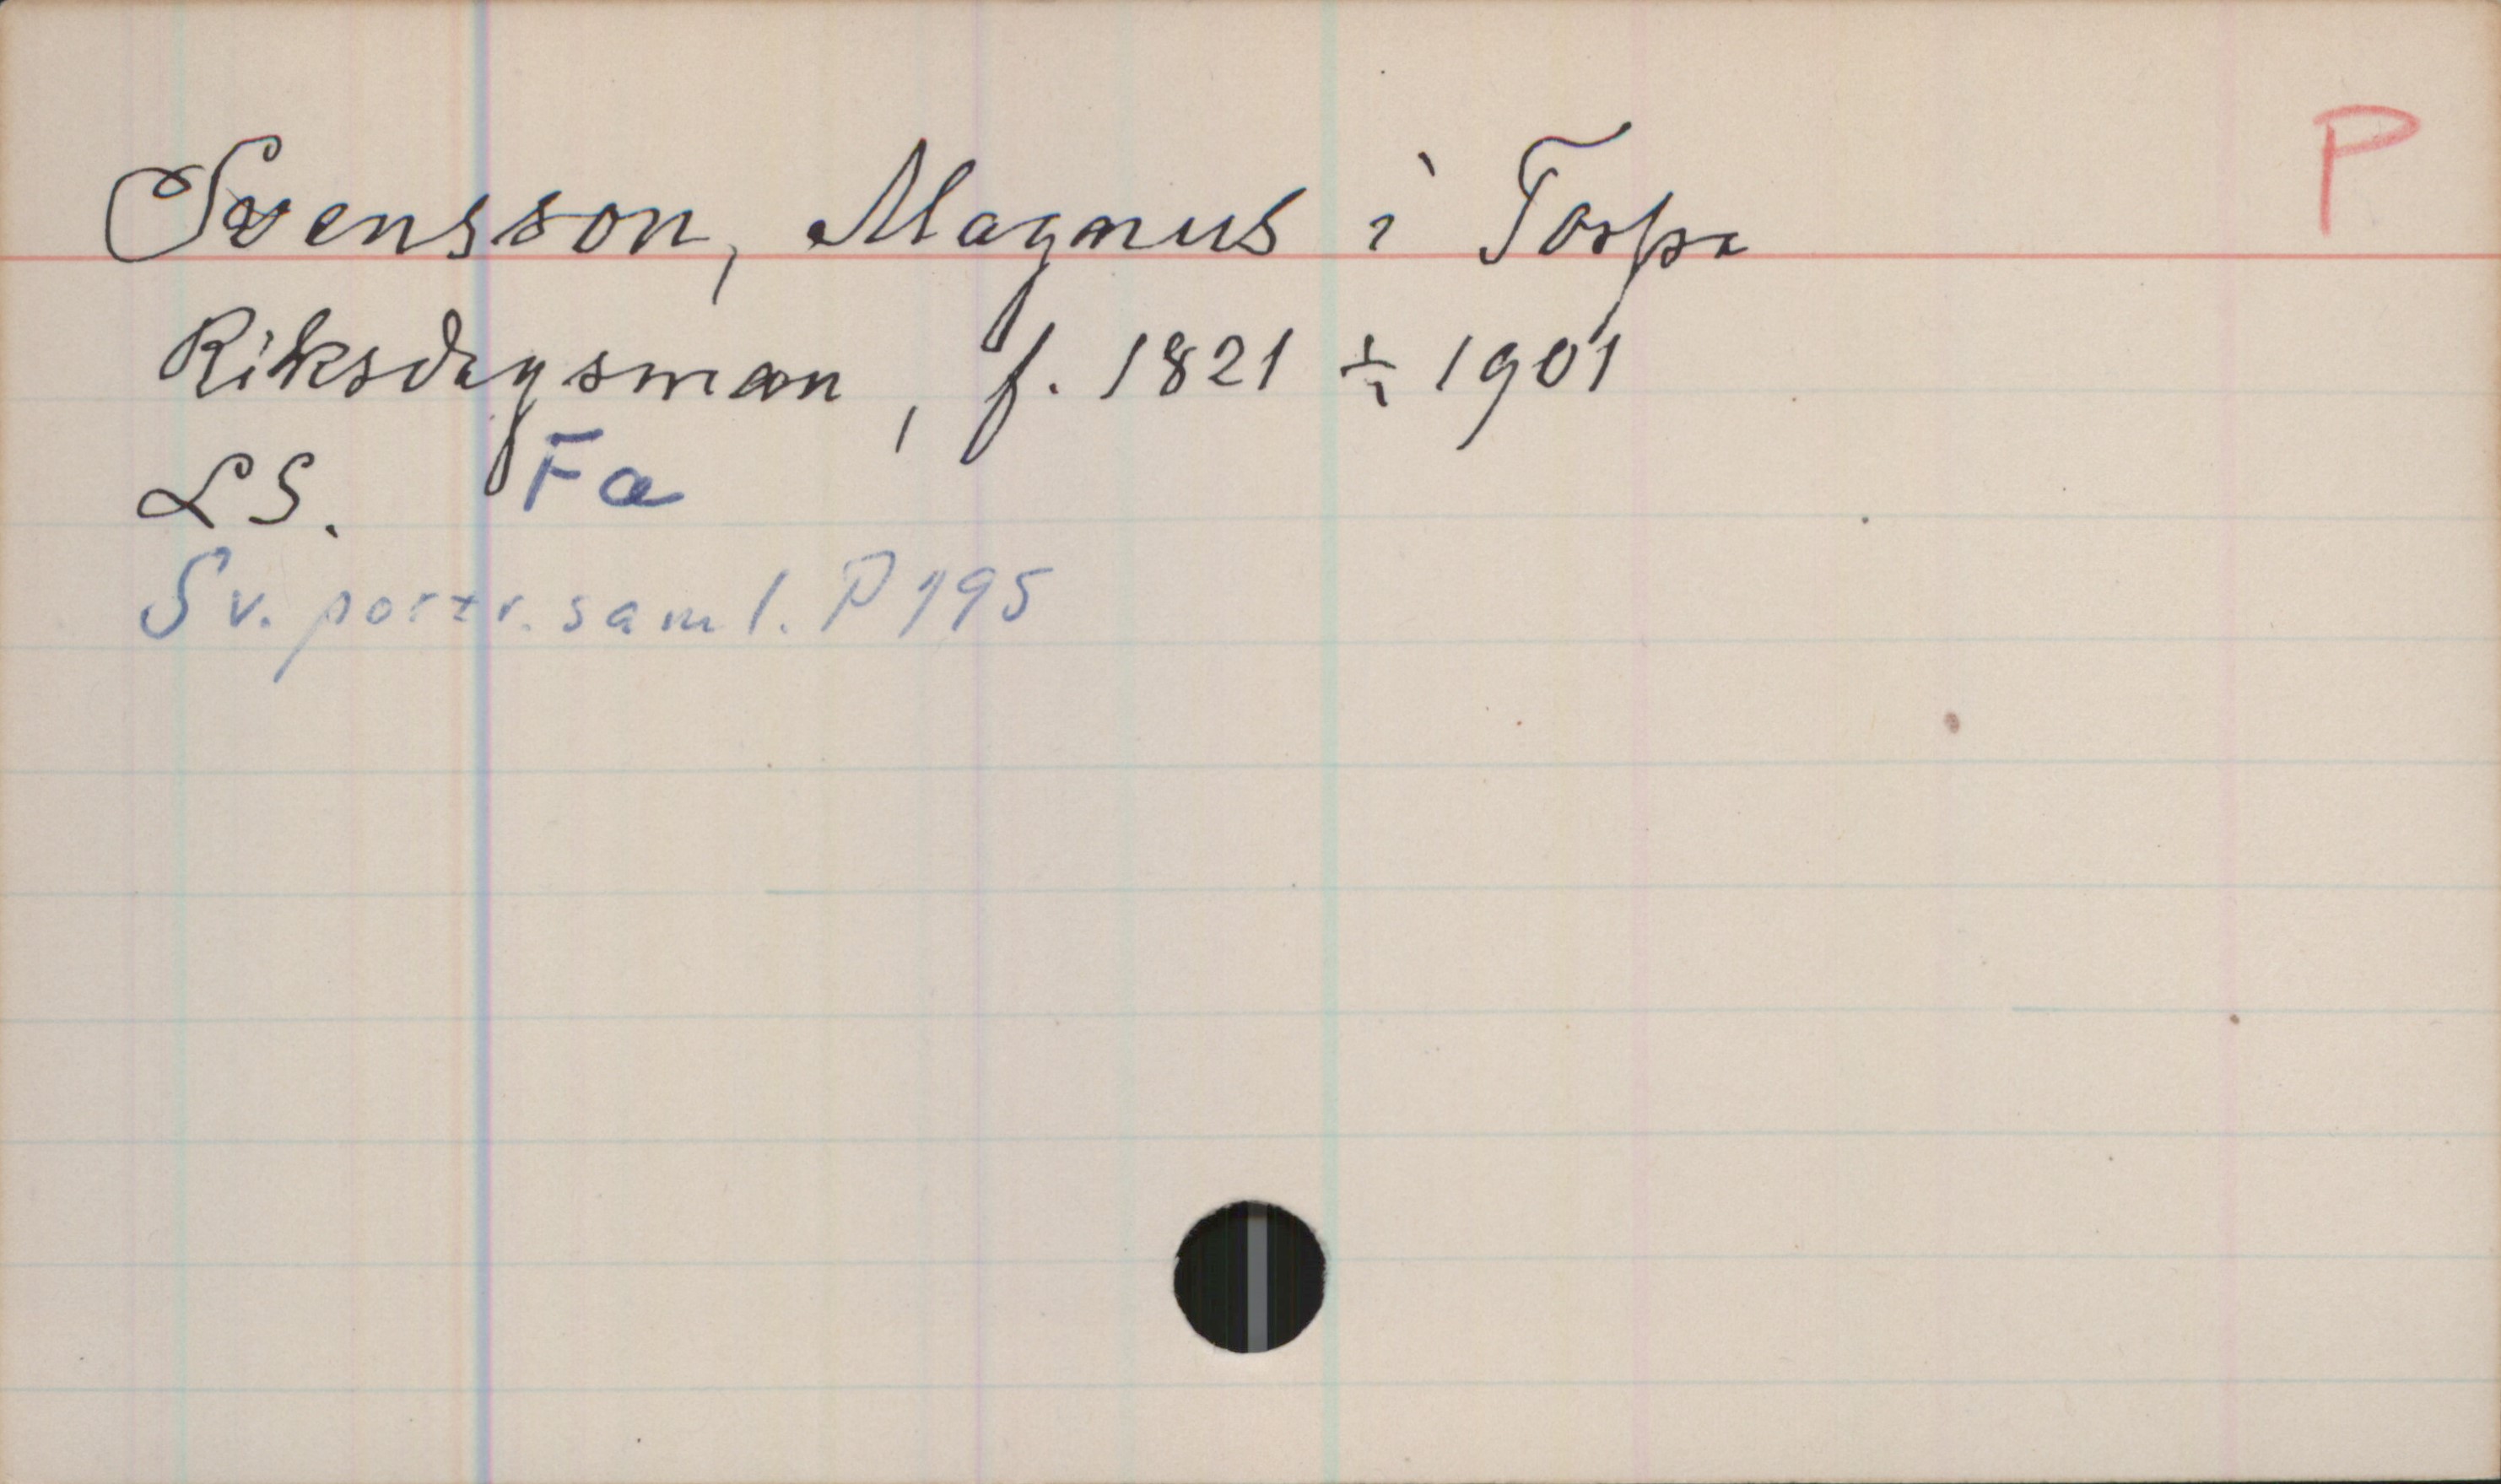 P
Svensson, Magnus i Torpa
Riksdagsman, f. 1821 ÷ 1901
LS. Fa
Sv. portr. saml. P 195